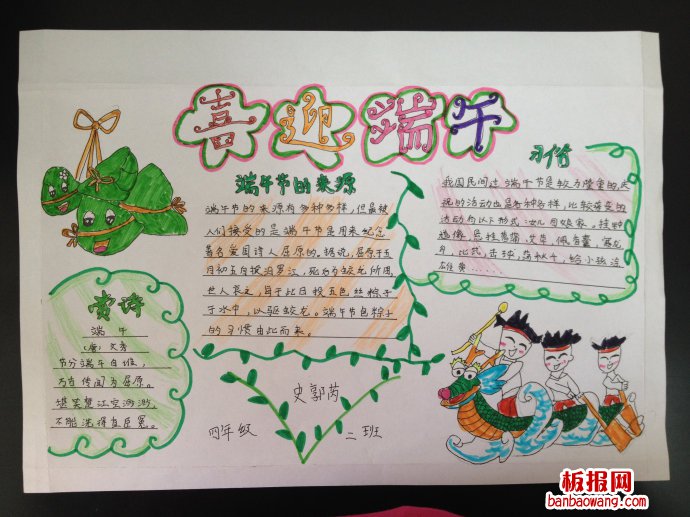 喜迎端午
端午节的来源
端午节的来源有多种多样,但最被
人们接受的是端午节是用来纪念
著名爱国诗人屈原的。据说,屈原于五
月初五自投汨罗江,死后为蛟龙所困
世人哀之,每于此日投五色丝粽子
于水中,以驱蛟龙。端午节包粽子
的习惯由此而来。
习俗
我国民间过端午节是较为隆重的,庆
祝的活动也是各种各样,比较普遍的
活动有以下形式:女儿回娘家,挂钟
馗像,悬挂菖蒲、艾草,佩香囊,赛龙
舟,比武,击球,荡秋千,给小孩涂
雄黄……
赏诗
端午
(唐)文秀
节分端午自谁言,
万古传闻为屈原。
堪笑楚江空渺渺,
不能洗得直臣冤。
史郭芮
四年级 二班
板报网
banbaowang.com